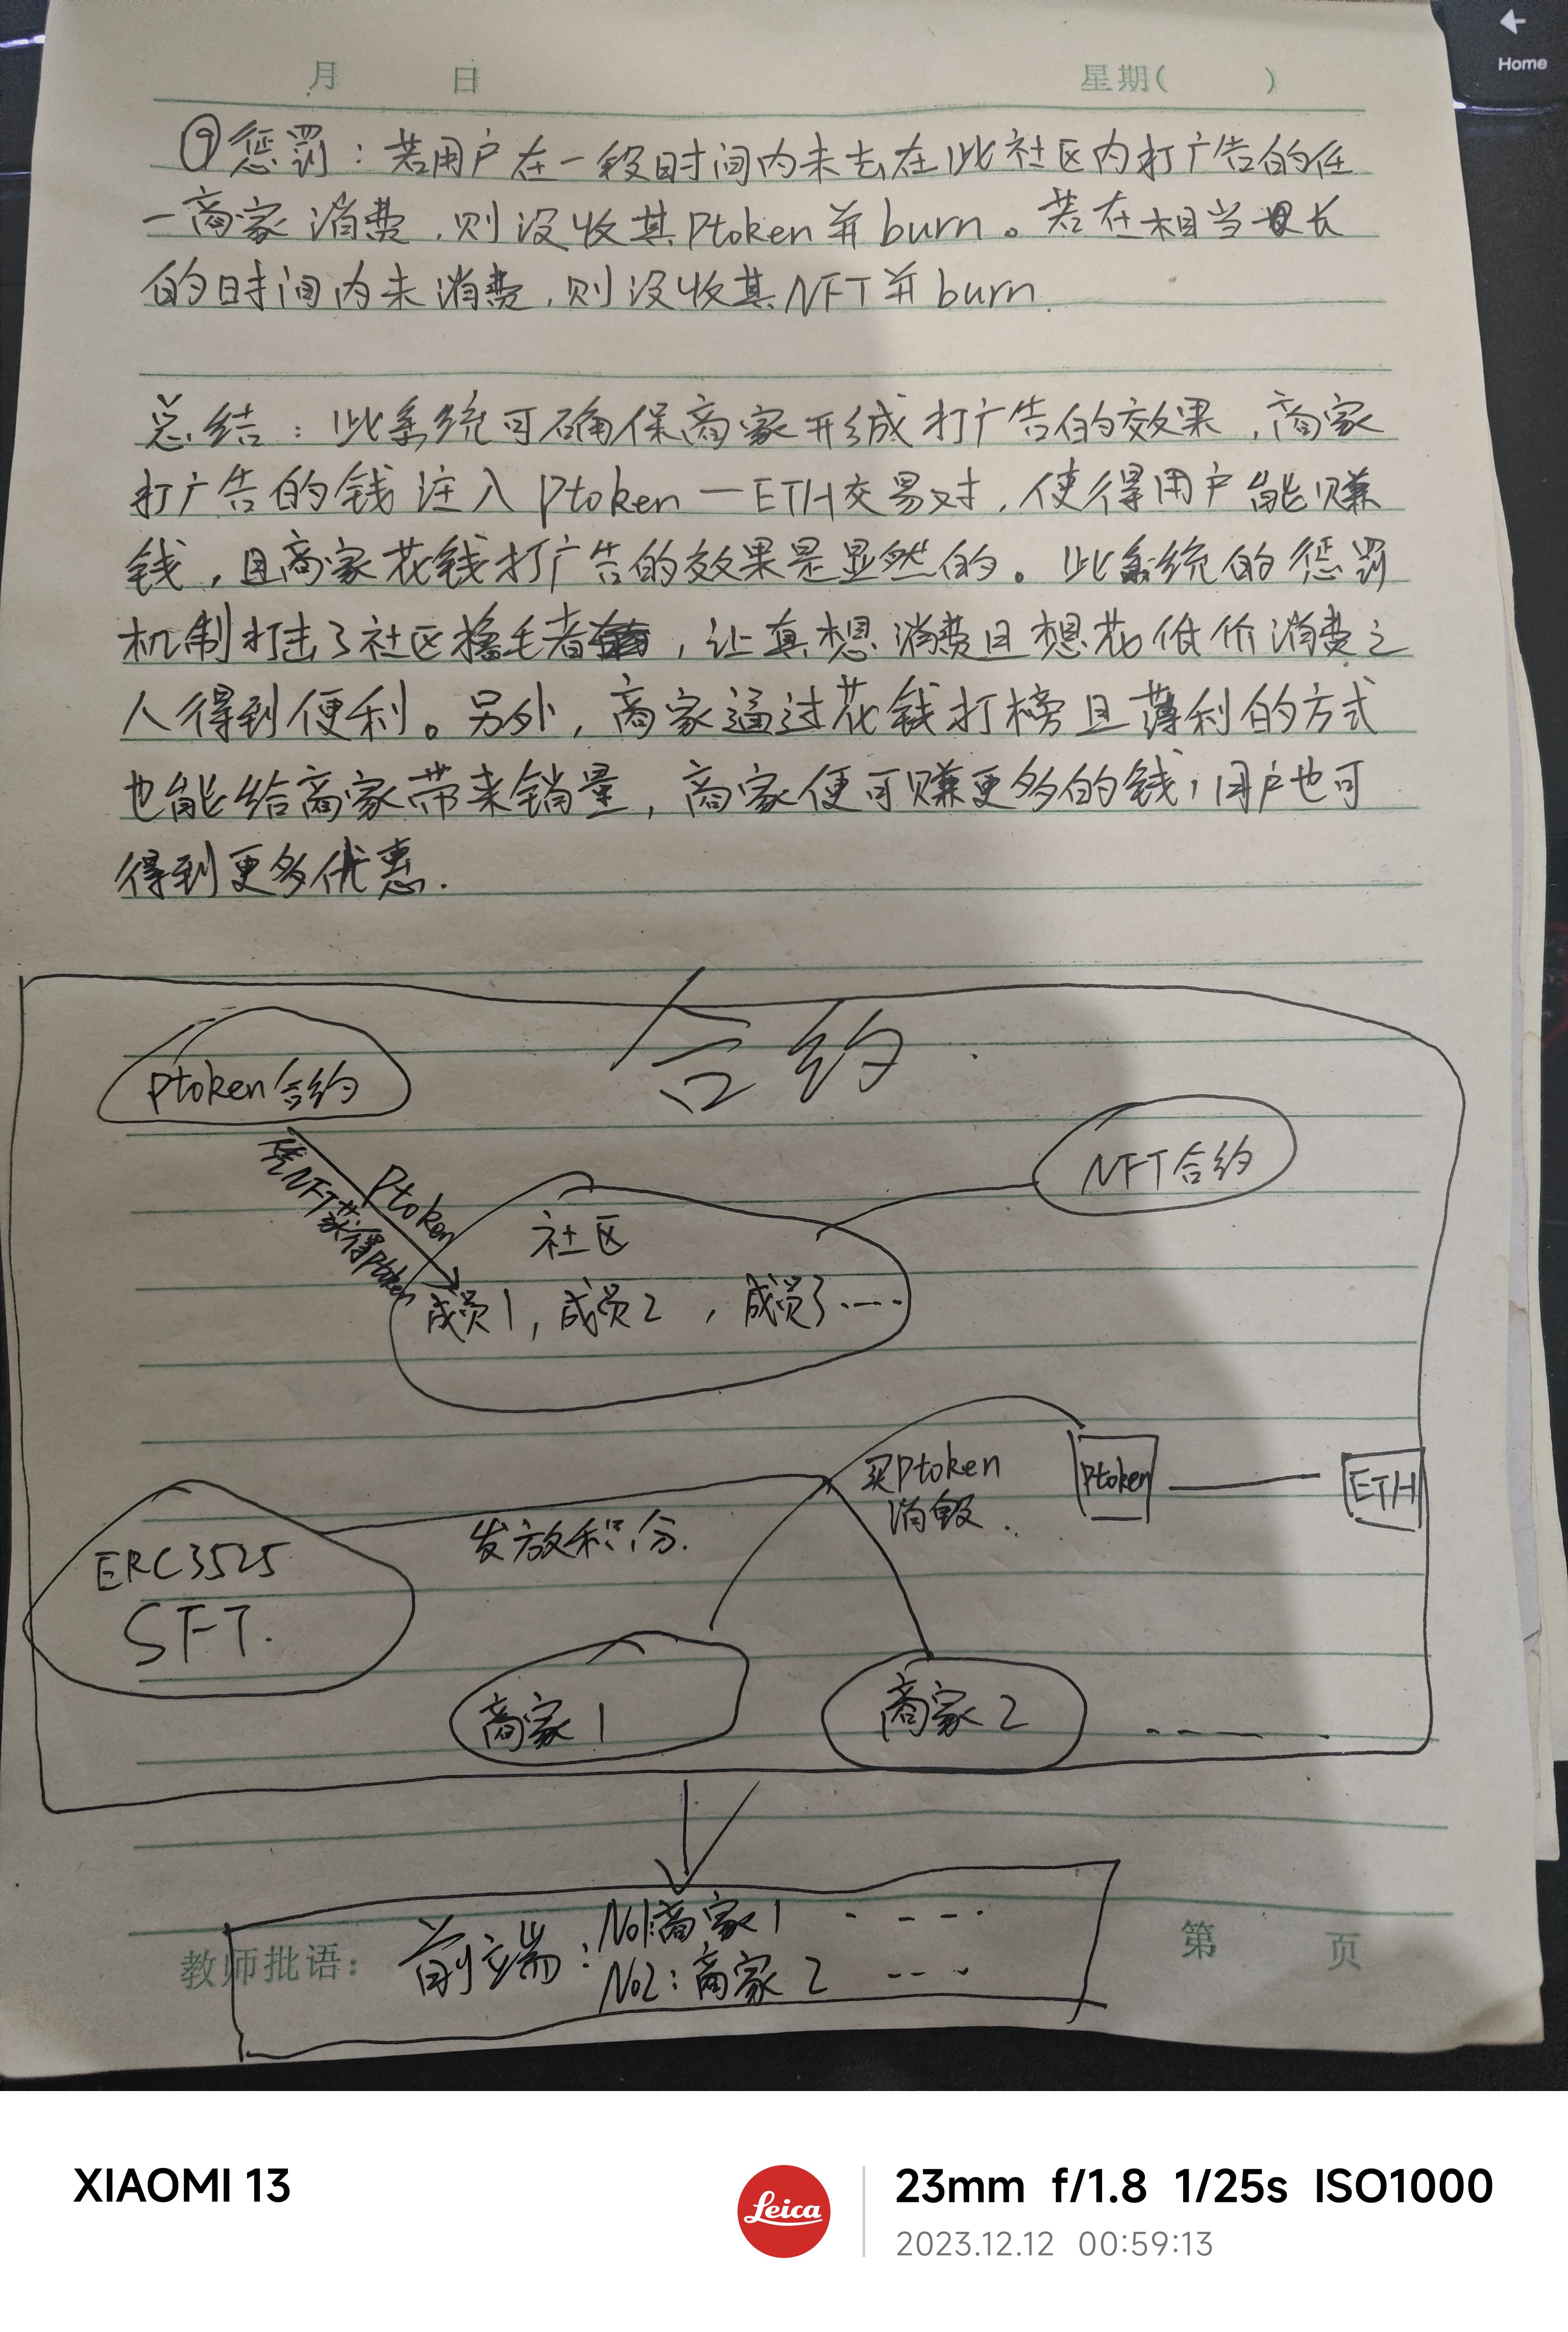 Home
月 日 星期( )
⑨惩罚：若用户在一段时间内未去在此社区内打广告的任
一商家消费，则没收其Ptoken并burn。若在相当长
的时间内未消费，则没收其NFT并burn.
总结：此系统可确保商家形成打广告的效果，商家
打广告的钱注入Ptoken—ETH交易对，使得用户能赚
钱，且商家花钱打广告的效果是显然的。此系统的惩罚
机制打击了社区撸毛者，让真想消费且想花低价消费之
人得到便利。另外，商家通过花钱打榜且薄利的方式
也能给商家带来销量，商家便可赚更多的钱，用户也可
得到更多优惠.
合约
Ptoken合约
NFT合约
凭NFT获得Ptoken
Ptoken
社区
成员1，成员2，成员3……
买Ptoken
消毁.
Ptoken
ETH
发放积分.
ERC3525
SFT.
商家1
商家2
前端：No1:商家1 ----
No2:商家2 ---
教师批语： 第 页
XIAOMI 13
Leica
23mm f/1.8 1/25s ISO1000
2023.12.12 00:59:13